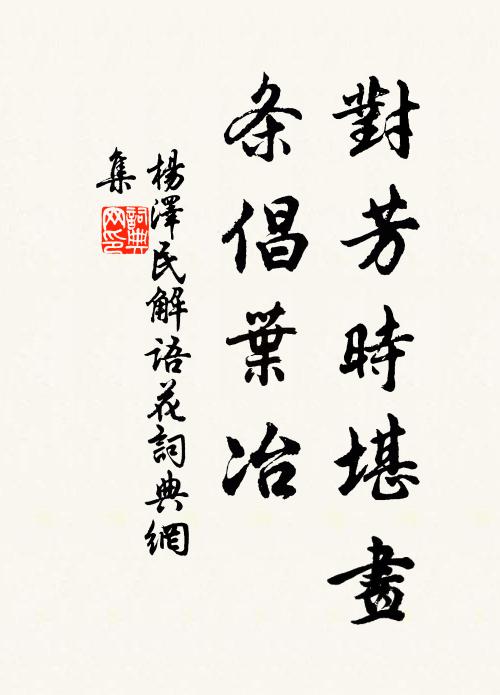 對芳時堪畫
条倡葉冶
楊澤民解语花詞典網
集
詞典
网印